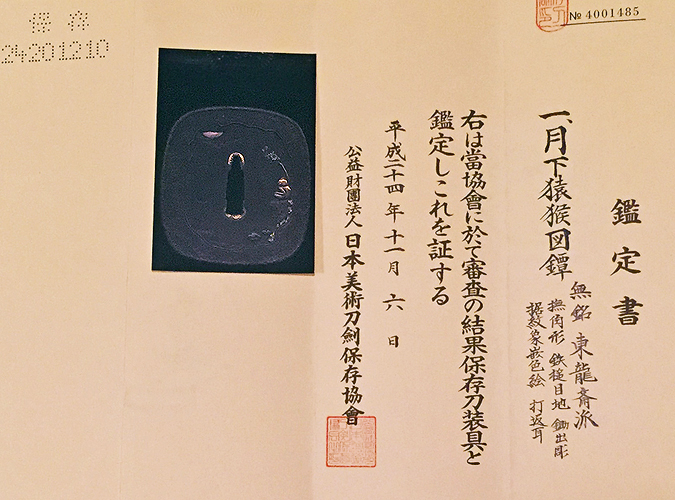 № 4001485
保存
24201210
鑑定書
一、月下猿猴図鐔
無銘 東龍斎派
撫角形 鉄槌目地 鋤出彫
据紋象嵌色絵 打返耳
右は當協會に於て審査の結果保存刀装具と
鑑定しこれを証する
平成二十四年十一月六日
公益財團法人日本美術刀劍保存協會